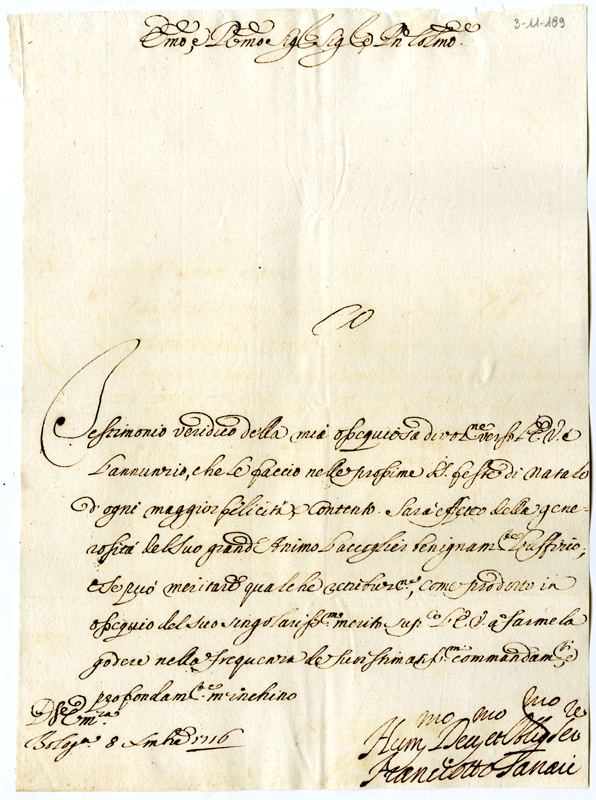 3-11-189
Emo, e Rmo Sigre Sigre e Pne Colmo.
Testimonio veridico della mia ossequiosa divotne verso l'E. V. è
l'annunzio, che le faccio nelle prossime Ste feste di Natale
d'ogni maggior felicità e contento. Sarà effetto della gene-
rosità del suo grand'Animo l'accoglier benignamte l'uffizio,
e se può meritare qualche retribuzne, come prodotto in
ossequio del suo singolarissmo merito, suppco l'E. V. a farmela
godere nella frequenza de suoi stimatissmi commandamti, e
profondamte m'inchino
D. V. Ema
Bologa 8 Xmbre 1716
Hummo Devmo et Obligmo Sere
Franciotto Tanari